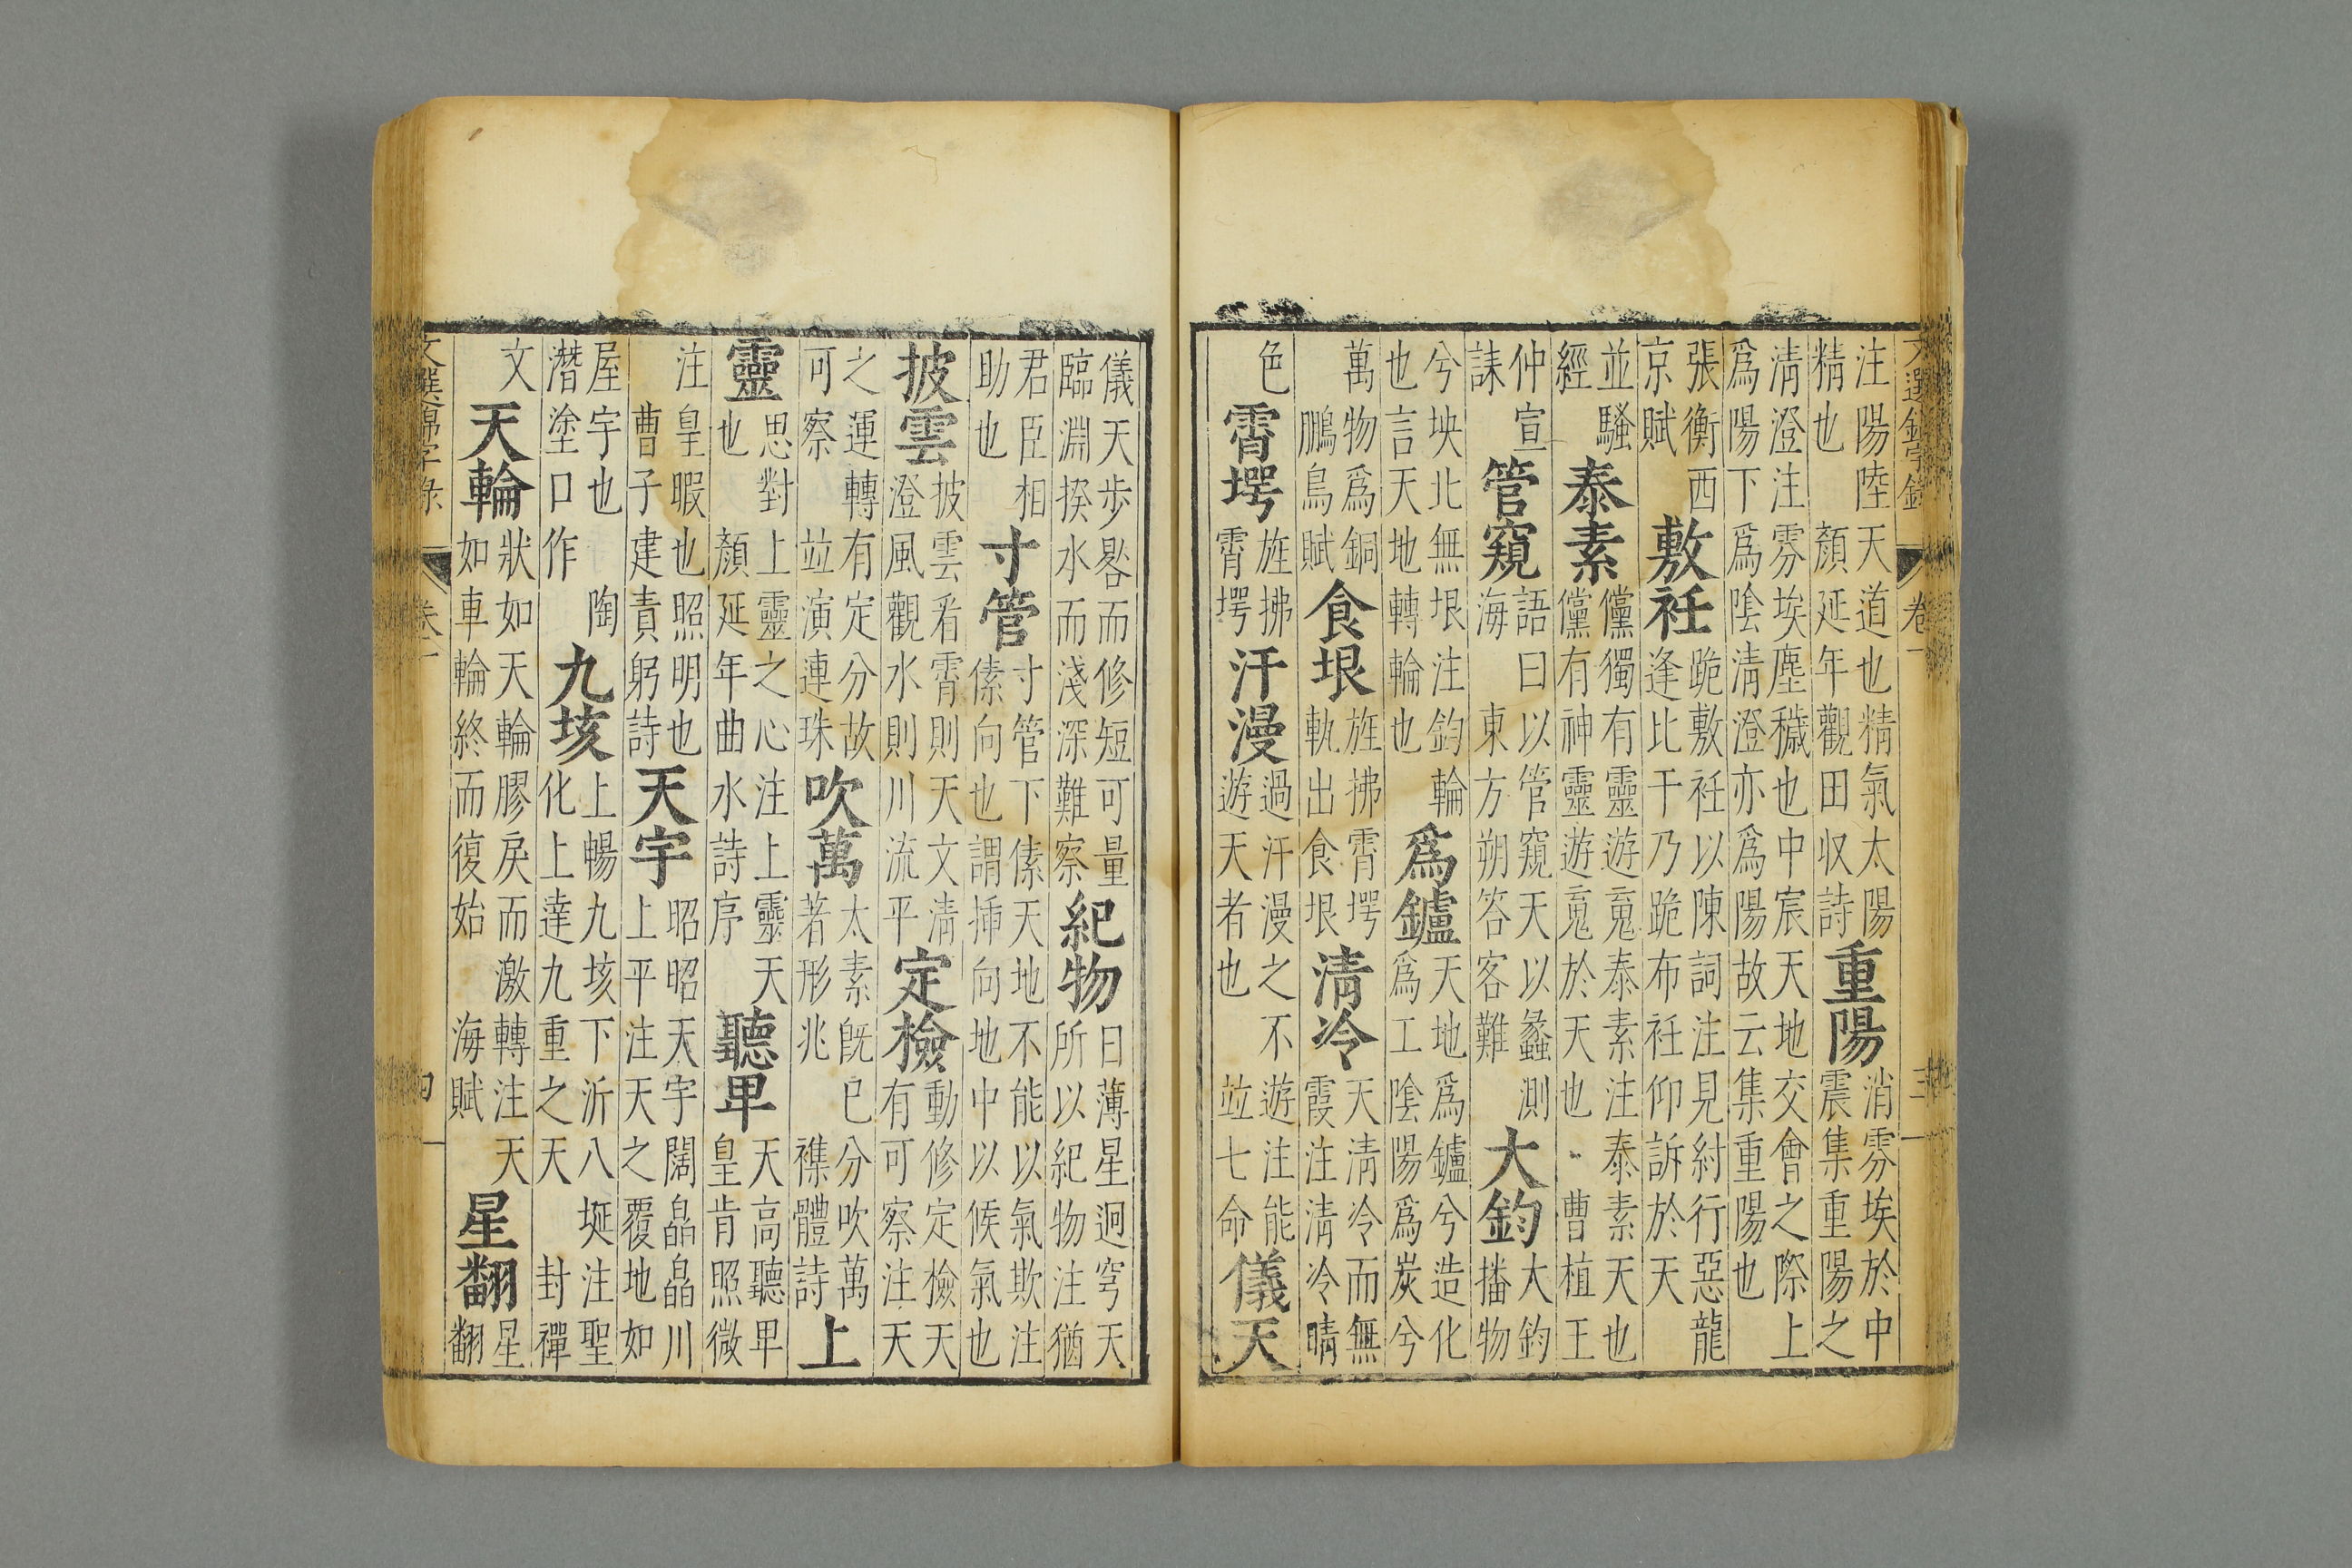 文選錦字錄 卷一 三
注陽陸天道也精氣太陽
精也 顏延年觀田収詩
重陽
消雰埃於中
震集重陽之
清澄注雰埃塵穢也中宸天地交會之際上
爲陽下爲陰清澄亦爲陽故云集重陽也
張衡西
京賦
敷衽
跪敷衽以陳詞注見紂行惡龍
逢比干乃跪布衽仰訴於天
並騷
經
泰素
儻獨有靈遊䰟泰素注泰素天也
儻有神靈遊䰟於天也 曹植王
仲宣
誄
管窺
語曰以管窺天以蠡測
海 東方朔答客難
大鈞
大鈞
播物
兮坱北無垠注鈞輪
也言天地轉輪也
爲鑪
天地爲鑪兮造化
爲工陰陽爲炭兮
萬物爲銅
鵬鳥賦
食垠
旌拂霄堮
軌出食垠
清泠
天清泠而無
霞注清泠晴
色
霄堮
旌拂
霄堮
汗漫
過汗漫之不遊注能
遊天者也 並七命
儀天
儀天步晷而修短可量
臨淵揆水而淺深難察
紀物
日薄星迥穹天
所以紀物注猶
君臣相
助也
寸管
寸管下傃天地不能以氣欺注
傃向也謂揷向地中以候氣也
披雲
披雲看霄則天文清
澄風觀水則川流平
定檢
動修定檢天
有可察注天
之運轉有定分故
可察 並演連珠
吹萬
太素既已分吹萬
著形兆 襍體詩
上
靈
思對上靈之心注上靈天
也 顏延年曲水詩序
聽卑
天高聽卑
皇肯照微
注皇暇也照明也
曹子建責躬詩
天宇
昭昭天宇闊皛皛川
上平注天之覆地如
屋宇也 陶
潛塗口作
九垓
上暢九垓下泝八埏注聖
化上達九重之天 封禪
文
天輪
狀如天輪膠戾而激轉注天
如車輪終而復始 海賦
星翻
星
翻
文選錦字錄 卷一 四